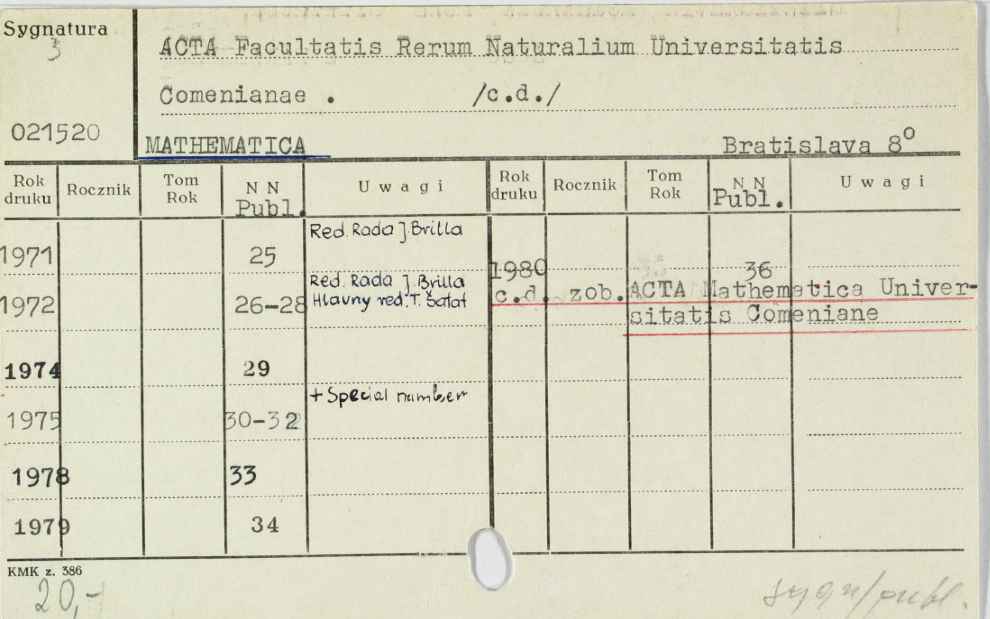 Sygnatura
3
021520
ACTA Facultatis Rerum Naturalium Universitatis
Comenianae . /c.d./
MATHEMATICA Bratislava 8°
Rok druku Rocznik Tom Rok NN Publ. Uwagi Rok druku Rocznik Tom Rok NN Publ. Uwagi
1971 25 Red. Rada J Brilla
1972 26-28 Red. Rada J Brilla
Hlavny red. T. Šalat
1974 29
1975 30-32 + Special number
1978 33
1979 34
1980 36
c.d. zob. ACTA Mathematica Univer-
sitatis Comeniane
KMK z. 386
20,-
sygn/publ.